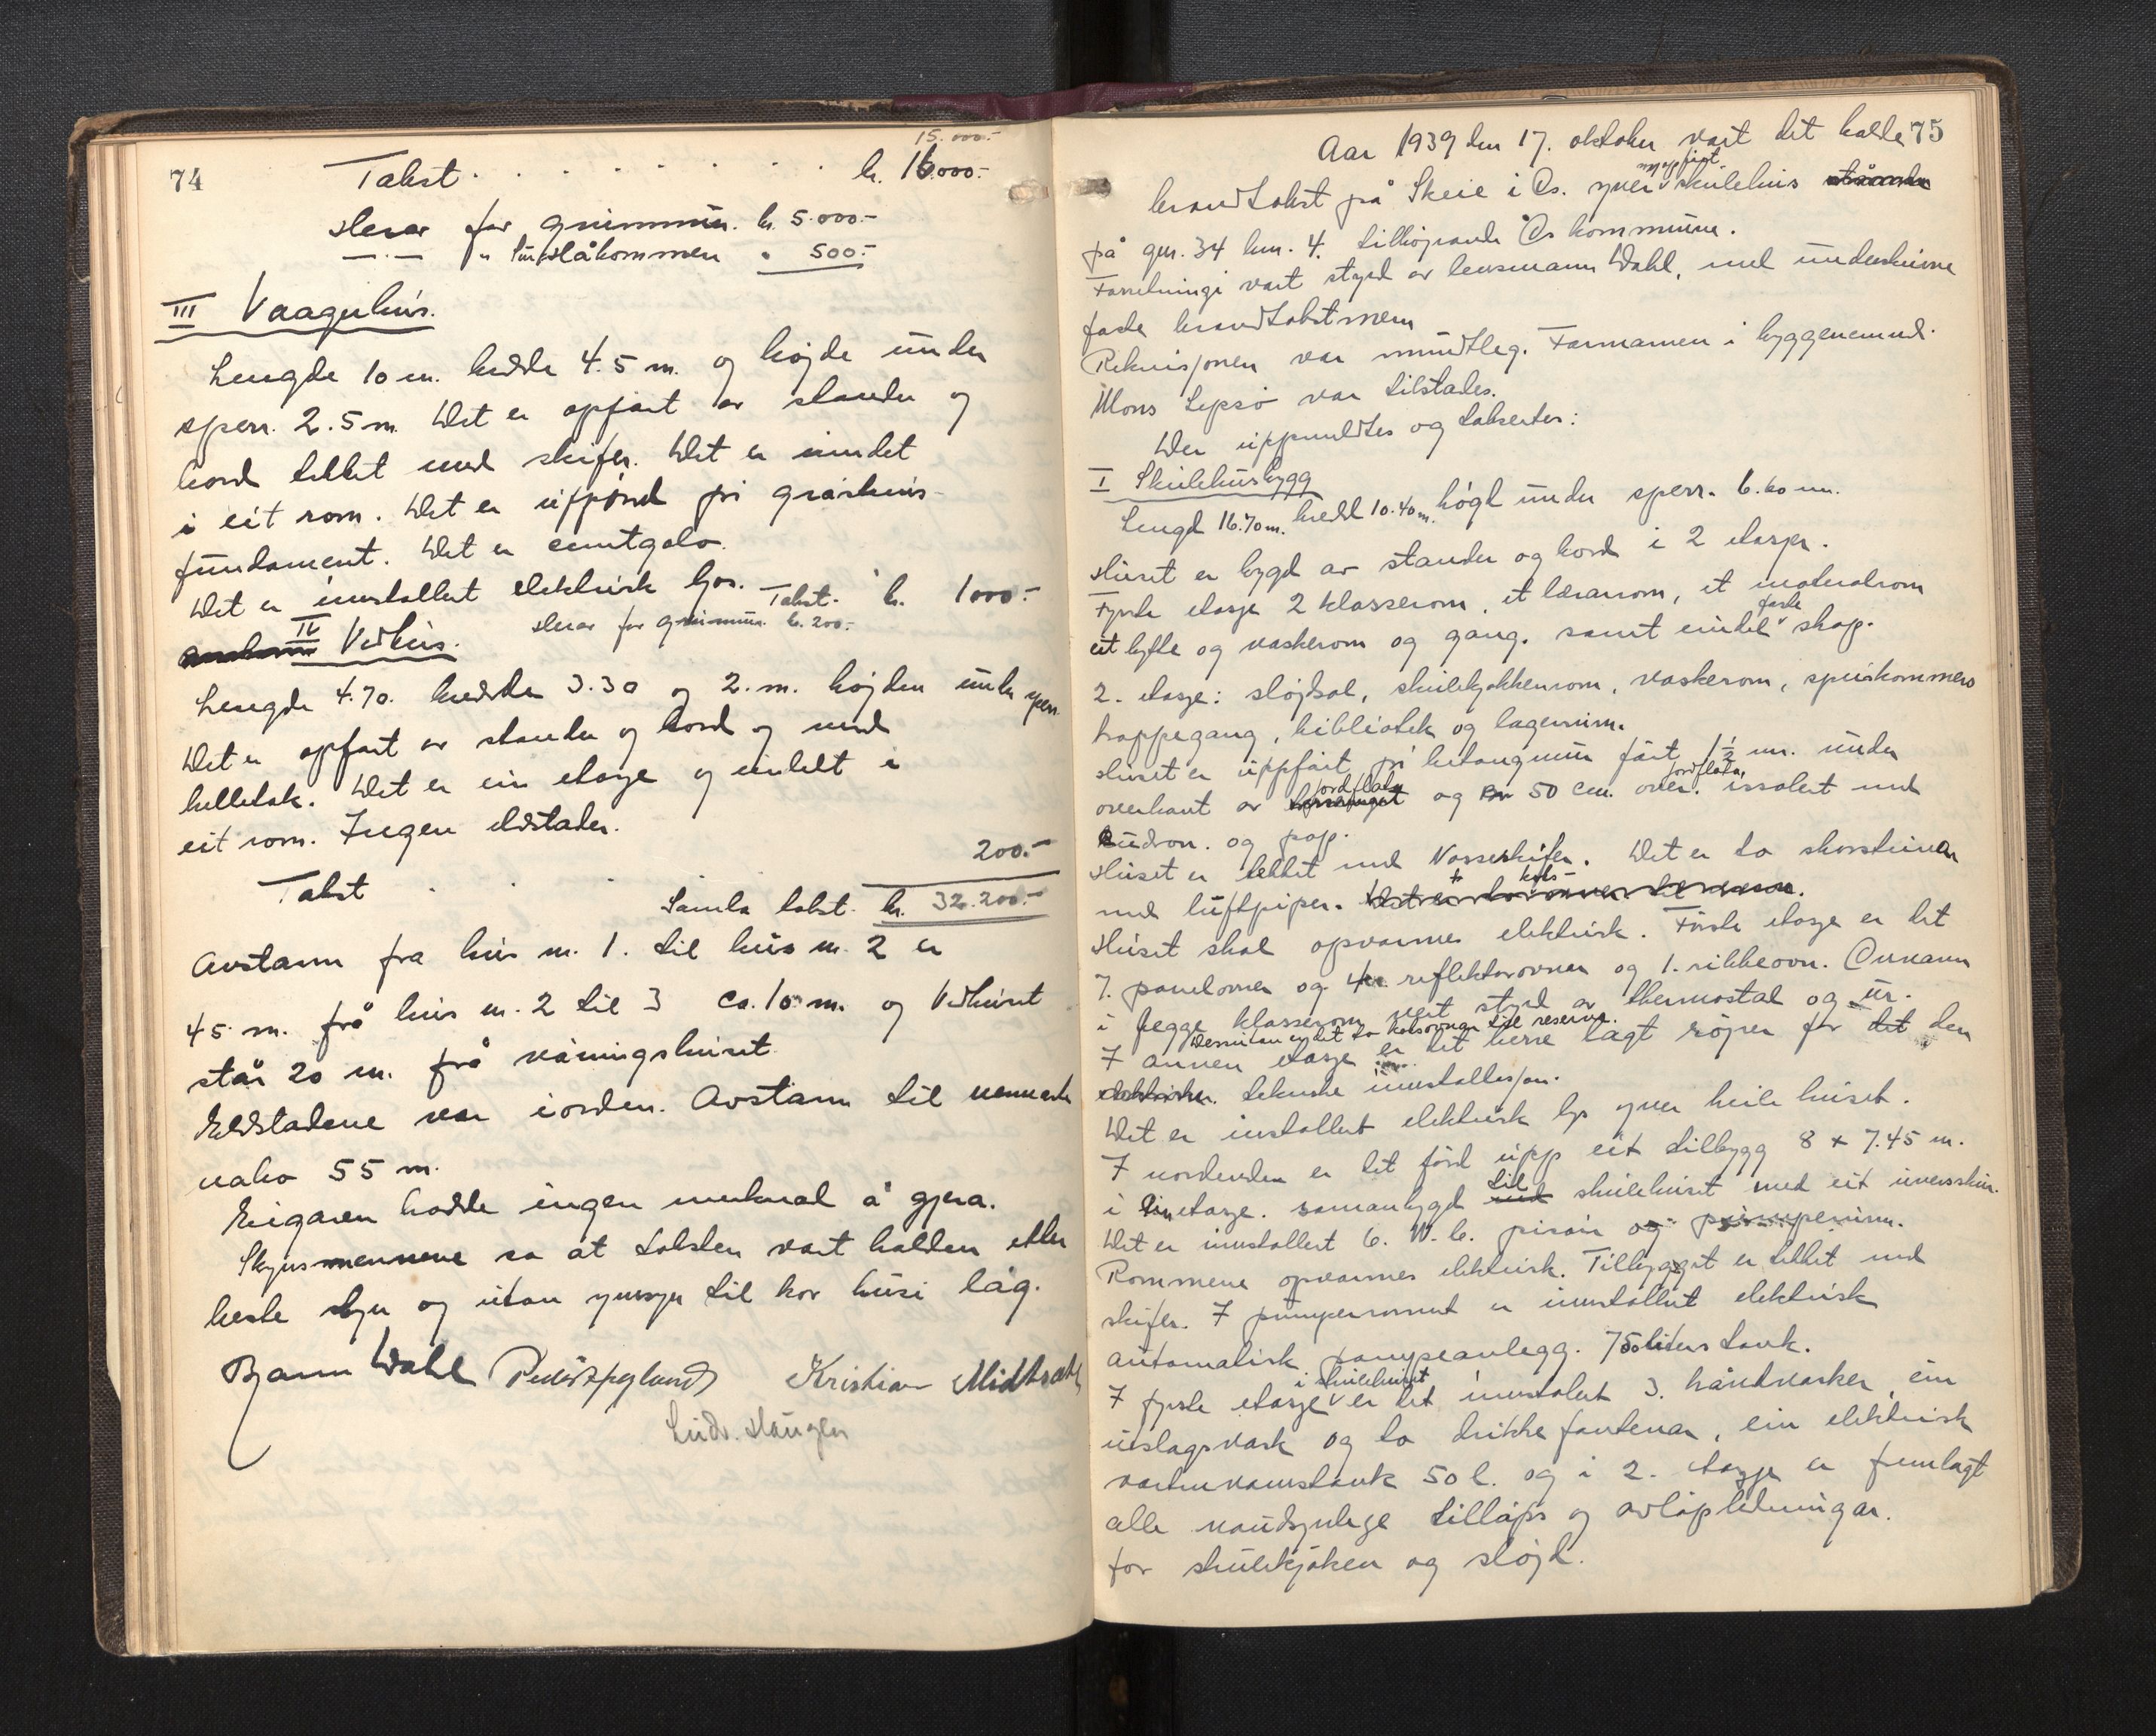 74
15.000.-
Takst . . . . . . . kr. 16.000.-
Herav for grunnmur. kr. 5.000.-
— . — " surhåkommen " 500.-
III Vaagnhus.
Lengde 10 m. bredde 4.5 m. og højde under
sperr. 2.5 m. Det er opført av stander og
bord tekket med skifer. Det er inndet
i eit rom. Det er uppførd på gråsteins-
fundament. Det er cemtgolv.
Det er innstallert elektrisk ljos. Takst. kr. 1000.-
Herav for grunnmur. kr. 200.-
IV Vedhus.
Lengde 4.70. bredde 3.30 og 2. m. højden under sperr.
Det er opført av stander og bord og med
helletak. Det er ein etasje og inndelt i
eit rom. Ingen eldstader.
Takst . . . 200.-
Samla takst. kr. 32.200.-
Avstann fra hus nr. 1. til hus nr. 2 er
45 m. frå hus nr. 2 til 3 ca. 10 m. og Vedhuset
står 20 m. frå våningshuset.
Eldstadene var iorden. Avstann til nemaste
nabo 55 m.
Eigaren hadde ingen merknad å gjera.
Skjønsmennene sa at taksten vart halden etter
beste skjøn og utan umsyn til kor husi låg.
Bjarne Wahl Kristian Midtsæter
Ludv. Haugen
75
Aar 1939 den 17. oktober vart det halde
brandtakst på Skeie i Os. yver nyoppført skulehus
på gnr. 34 bnr. 4. tilhøyrande Os kommune.
Forretningi vart styrd av lensmann Wahl, med underskrivne
faste brandtakstmenn
Rekvisjonen var mundtleg. Formannen i byggenemnd.
Mons Lepsø var tilstades.
Der uppmeldtes og takserter:
I Skulehusbygg
Lengd 16.70 m. bredd 10.40 m. høgd under sperr. 6.60 m.
Huset er bygd av stander og bord i 2 etasjer.
Fyrste etasje 2 klasserom, et lærarrom, et materialrom
eit bytte og vaskerom og gang. samt eindel faste skap.
2. etasje: sløjdsal, skulekjøkkenrom, vaskerom, speiskommers
trappegang, bibliotek og lagerrum.
Huset er uppført på betongmur ført 1 1/2 m. under
overkant av jordflata og 50 cm. over jordflata, issolert med
Gudron. og papp.
Huset er tekket med Vosseskifer. Det er to skorsteinar
med luftpiper.
Huset skal opvarmes elektrisk. Første etasje er det
7. panelovner og 4 reflektorovner og 1. sikkeovn. Ovnann
i begge klasserom vert styrd av thermostat og ur.
Dessutan er det to koksovnar til reserve.
I annen etasje er det berre lagt røyrer for det den
elektriske. tekniske innstallasjon.
Det er installert elektrisk lys yver heile huset.
I nordenden er det førd upp eit tilbygg 8 x 7.45 m.
i ein etasje. samanbygd til skulehuset med eit
Det er innstallert 6. W.C. pisoir og pumperum.
Rommene opvarmes elektrisk. Tilbygget er tekket med
skifer. I pumperommet er innstallert elektrisk
automatisk pumpeanlegg. 750 liters tank.
I fyrste etasje i skulehuset er det innstalert 3. håndvasker, ein
utslagsvask og to drikke fontenar, ein elektrisk
varmvannstank 50 l. og i 2. etasje er fremlagt
alle naudsynlege tilløps og avløpledningar.
for skulekjøken og sløjd.